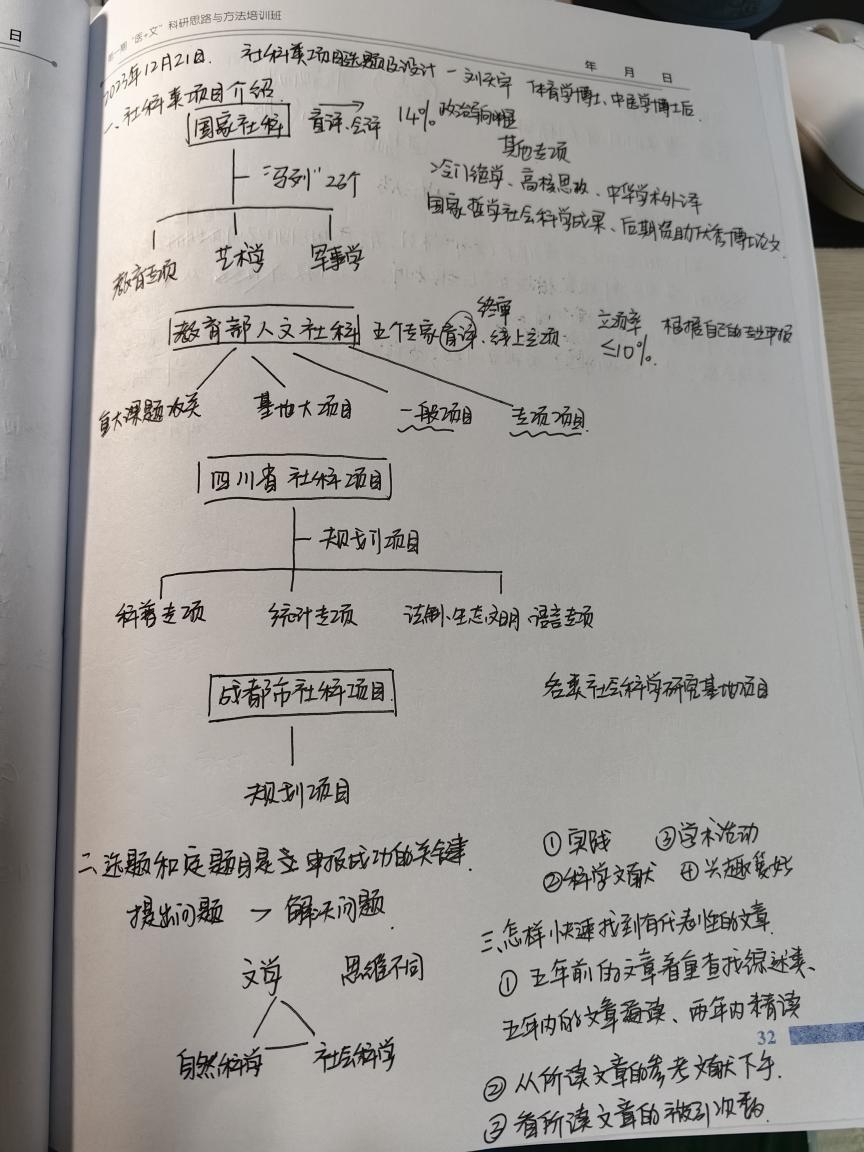 日
第一期“医+文”科研思路与方法培训班
年 月 日
2023年12月21日. 社科类项目选题及设计 - 刘天宇 体育学博士、中医学博士后.
一、社科类项目介绍
国家社科 盲评、会评 14% 政治导向明显
其他专项
“马列” 23个 冷门绝学、高校思政、中华学术外译
国家哲学社会科学成果、后期资助优秀博士论文.
教育专项 艺术学 军事学
教育部人文社科 五个专家盲评、线上立项 终审 立项率 ≤10%. 根据自己的专业申报
重大课题攻关 基地大项目 一般项目 专项项目.
四川省社科项目
规划项目
科普专项 统计专项 法制、生态文明、语言专项
成都市社科项目. 各类社会科学研究基地项目
规划项目
二、选题和定题目是 申报成功的关键.
提出问题 → 解决问题.
文学 思维不同
自然科学 社会科学
①实践 ③学术活动
②科学文献 ④兴趣爱好
三、怎样快速找到有代表性的文章.
① 五年前的文章着重查找综述类、
五年内的文章遍读、两年内精读
② 从所读文章的参考文献下手.
③ 看所读文章的被引次数.
32